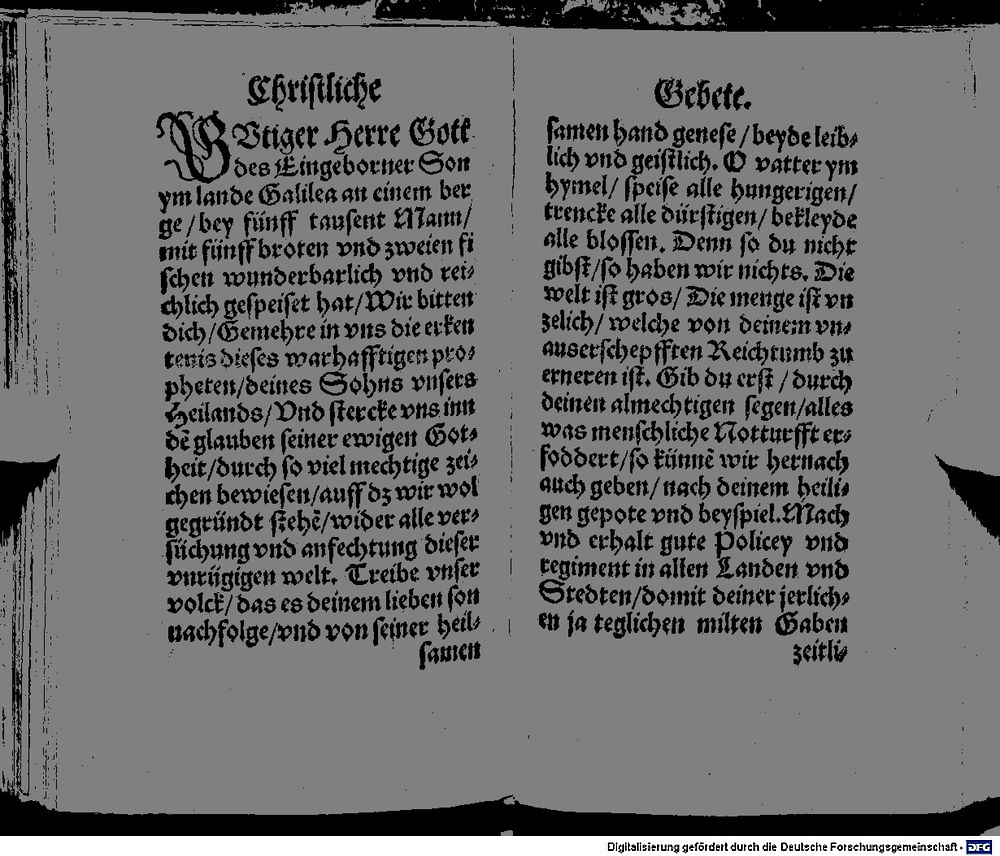 Christliche
GVtiger Herre Gott
des Eingeborner Son
ym lande Galilea an einem ber
ge/bey fünff tausent Mann/
mit fünff broten vnd zweien fi
schen wunderbarlich vnd rei⸗
chlich gespeiset hat/Wir bitten
dich/Gemehre in vns die erken
tenis dieses warhafftigen pro⸗
pheten/deines Sohns vnsers
Heilands/Vnd stercke vns inn
dē glauben seiner ewigen Got⸗
heit/durch so viel mechtige zei⸗
chen bewiesen/auff dz wir wol
gegründt stehē/wider alle ver⸗
süchung vnd anfechtung dieser
vnrügigen welt. Treibe vnser
volck/das es deinem lieben son
nachfolge/vnd von seiner heil⸗
samen
Gebete.
samen hand genese/beyde leib⸗
lich vnd geistlich. O vatter ym
hymel/ speise alle hungerigen/
trencke alle dürstigen/bekleyde
alle blossen. Denn so du nicht
gibst/so haben wir nichts. Die
welt ist gros/ Die menge ist vn
zelich/ welche von deinem vn⸗
auserschepfften Reichtumb zu
erneren ist. Gib du erst /durch
deinen almechtigen segen/alles
was menschliche Notturfft er⸗
foddert/so künnē wir hernach
auch geben/nach deinem heili⸗
gen gepote vnd beyspiel.Mach
vnd erhalt gute Policey vnd
regiment in allen Landen vnd
Stedten/domit deiner jerlich⸗
en ja teglichen milten Gaben
zeitli⸗
Digitalisierung gefördert durch die Deutsche Forschungsgemeinschaft - DFG